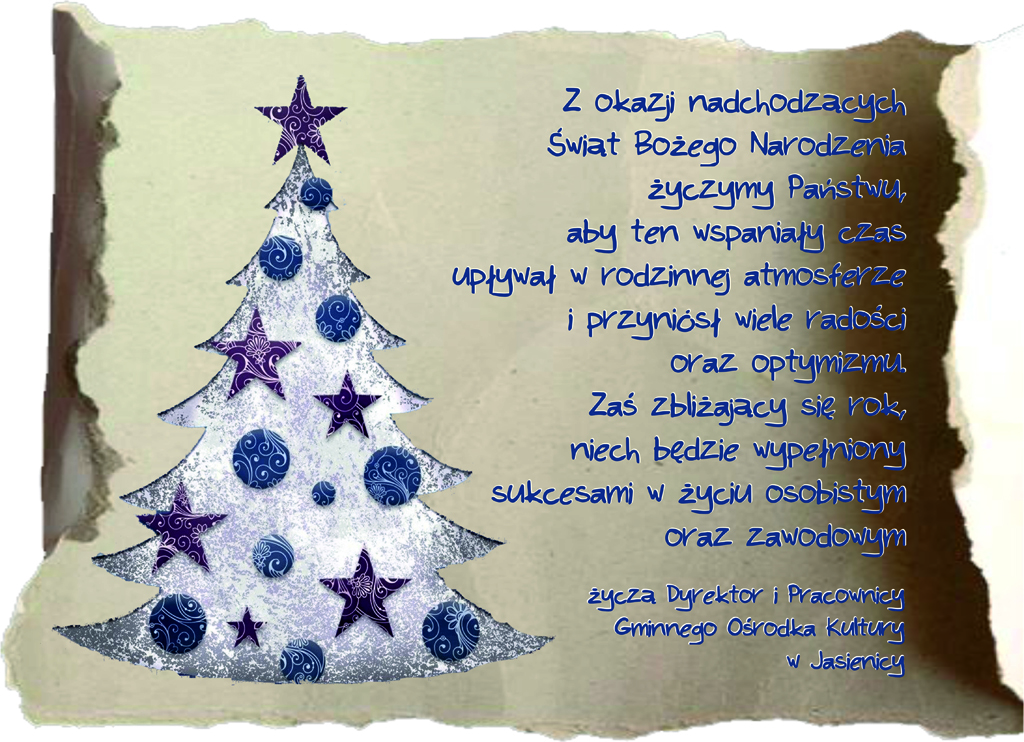 Z okazji nadchodzących
Świąt Bożego Narodzenia
życzymy Państwu,
aby ten wspaniały czas
upływał w rodzinnej atmosferze
i przyniósł wiele radości
oraz optymizmu.
Zaś zbliżający się rok,
niech będzie wypełniony
sukcesami w życiu osobistym
oraz zawodowym
życzą Dyrektor i Pracownicy
Gminnego Ośrodka Kultury
w Jasienicy